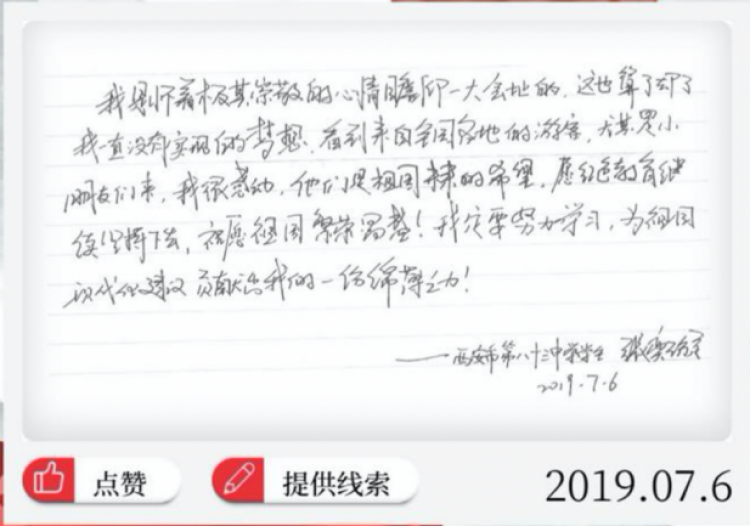 我是怀着极其崇敬的心情瞻仰一大会址的,这也算了却了
我一直没有实现的梦想,看到来自全国各地的游客,尤其是小
朋友们来,我很感动,他们是祖国未来的希望,愿红色教育继
续坚持下去,祝愿祖国繁荣昌盛!我定要努力学习,为祖国
现代化建设贡献出我的一份绵薄之力!
——西安市第八十三中学学生 张
2019.7.6
点赞
提供线索
2019.07.6